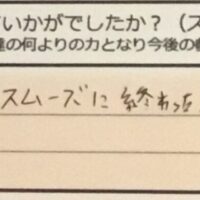 いかがでしたか？（ス
の何よりの力となり今後の
スムーズに終わった